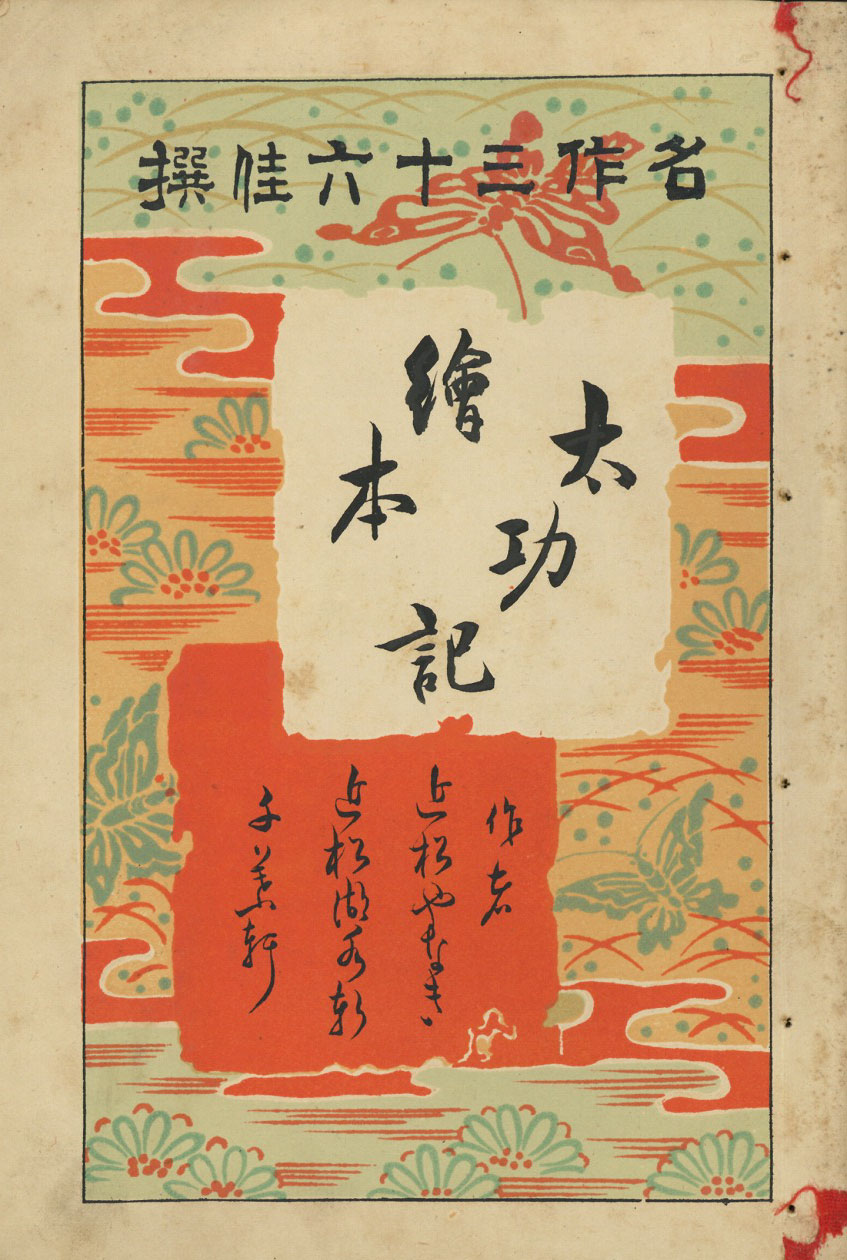 名作三十六佳撰
繪本
太功記
作者
近松やなぎ
近松湖水軒
千葉軒